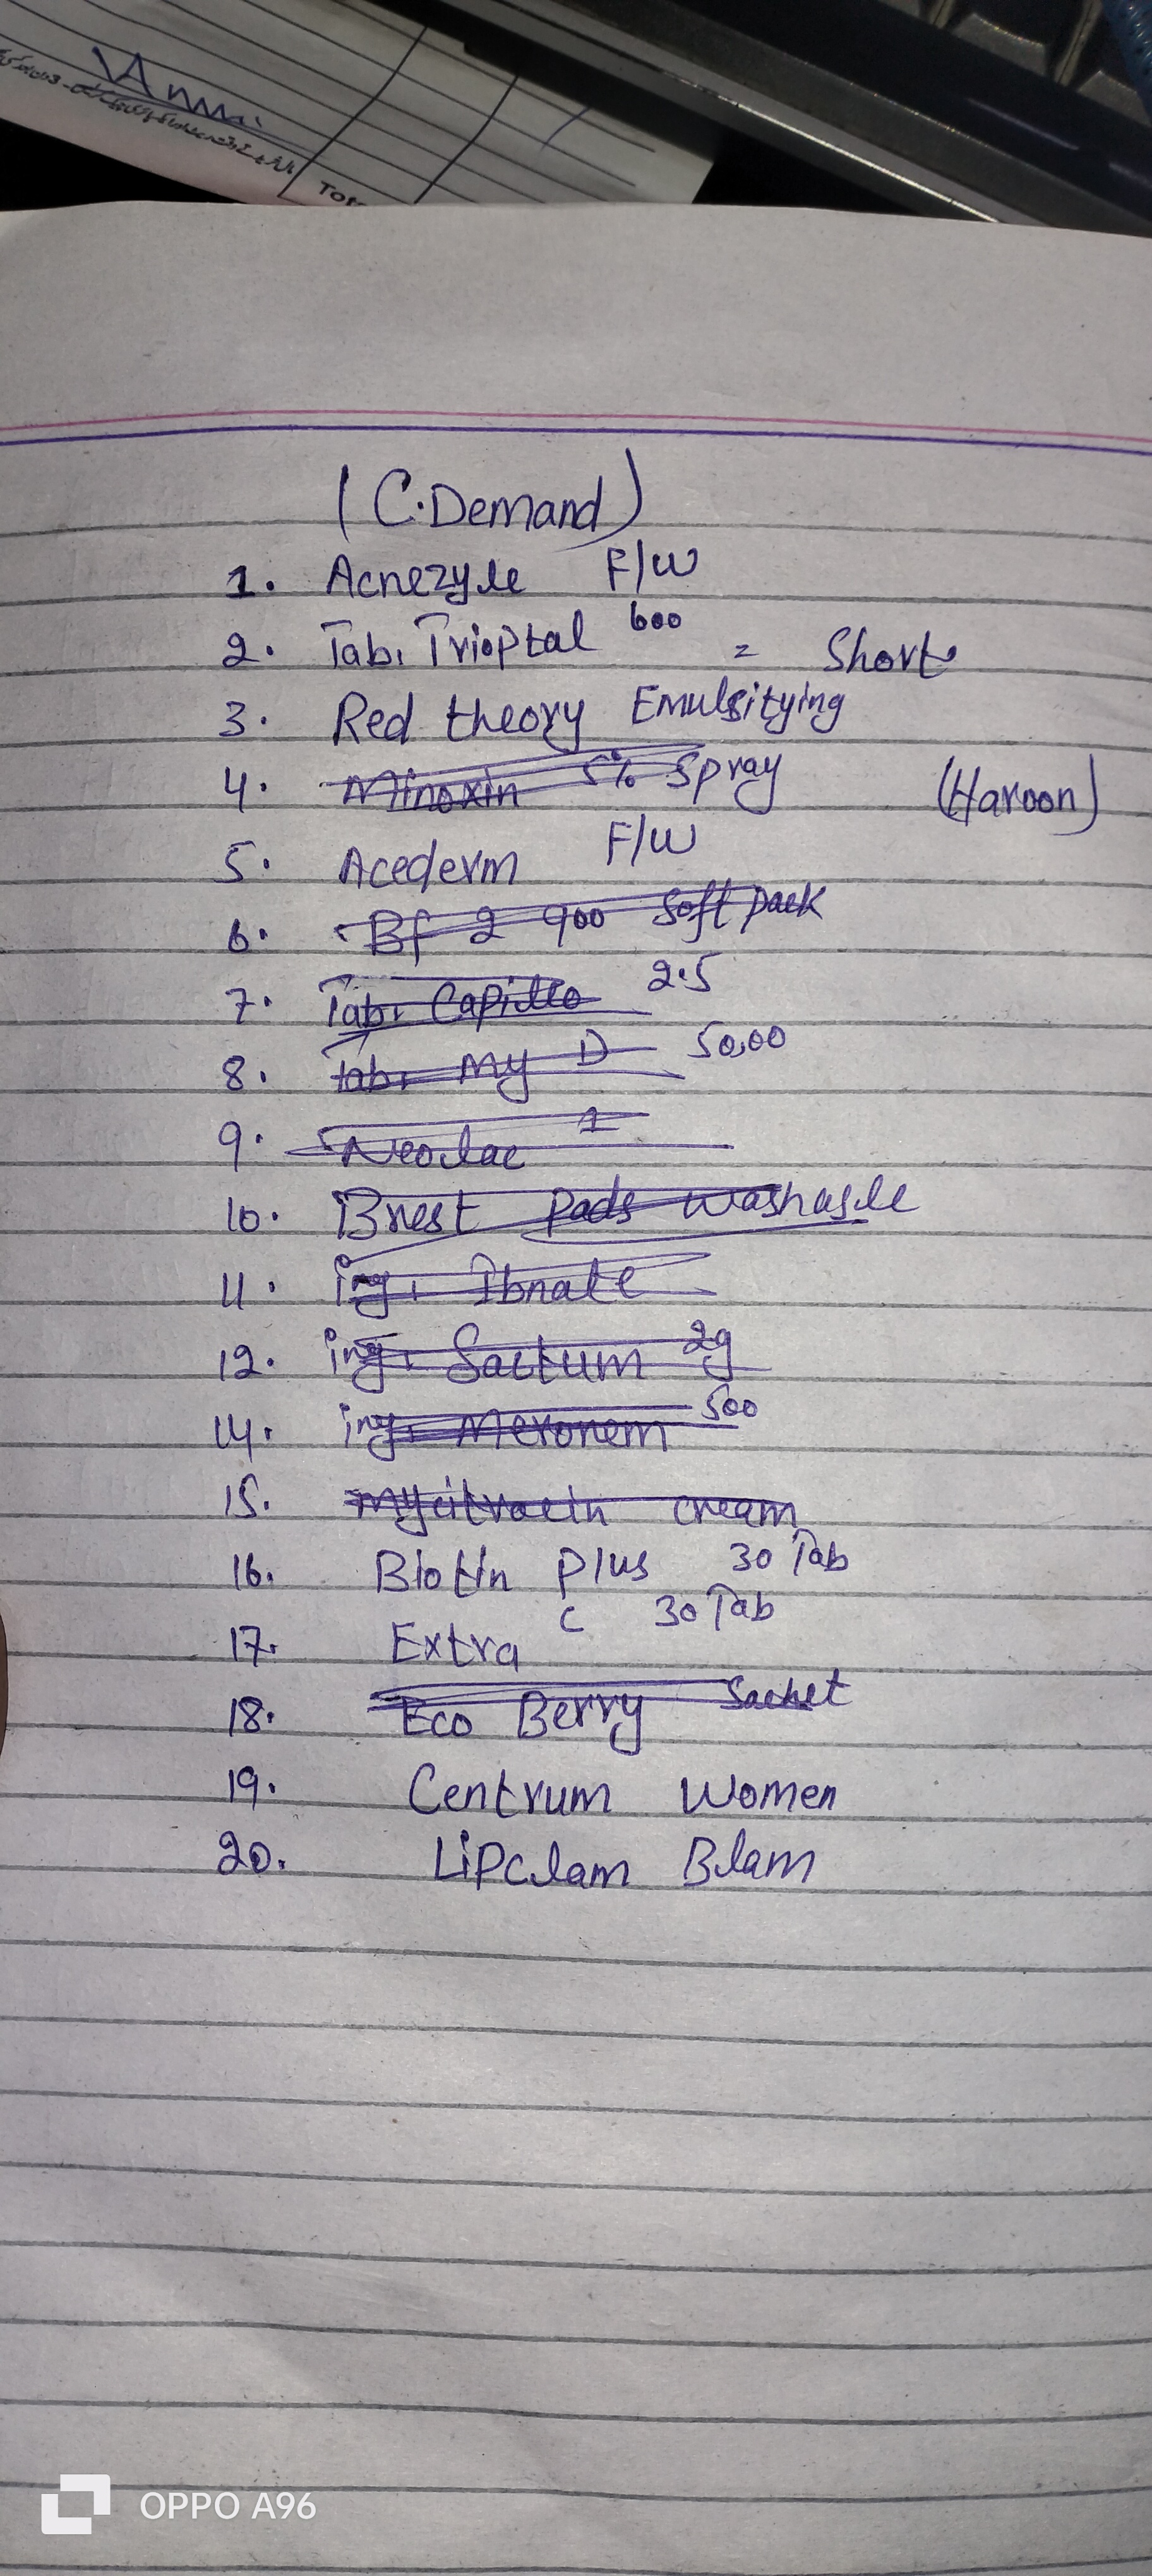 Tot
(C.Demand)
1. Acnezyle F/W
2. Tab. Trioptal 600 = Short
3. Red theory Emulsitying
4. Minoxin 5% Spray (Haroon)
5. Acederm F/W
6. Bf 2 900 Soft pack
7. Tab. Capitto 2.5
8. tab. My D 50,00
9. Neolac 1
10. Brest Pads washasle
11. inj. Ibnate
12. inj. Sactum 2g
14. inj. Meronem 500
15. mycitracin cream
16. Biotin Plus 30 Tab
17. Extra C 30 Tab
18. Eco Berry Sachet
19. Centrum Women
20. Lipclam Blam
OPPO A96